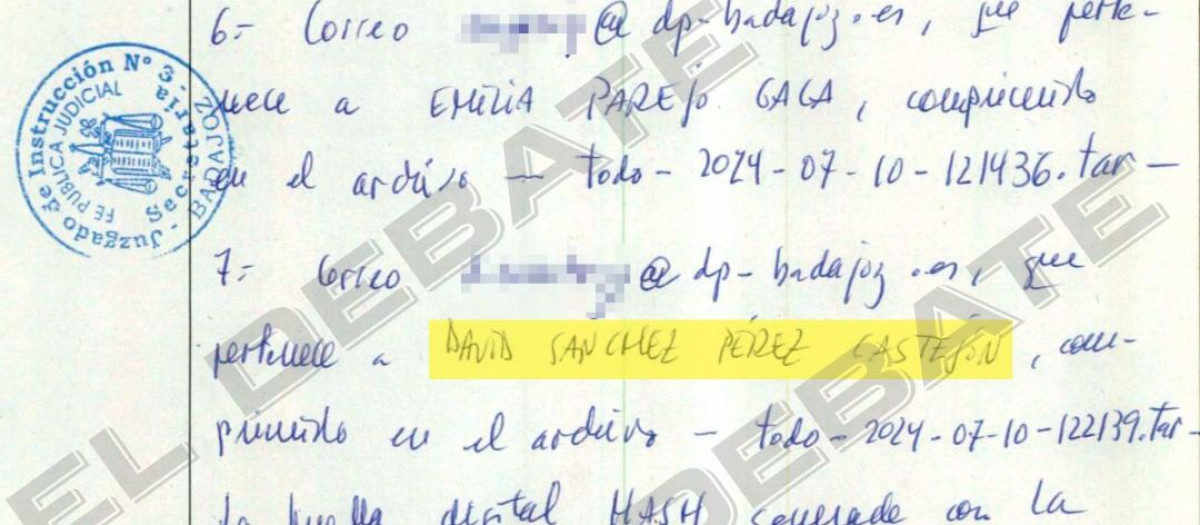 6.- Correo @dp-badajoz.es, que perte-
nece a EMILIA PAREJO GAGA, comprimido
en el archivo — todo-2024-07-10-121436.tar —
7.- Correo @dp-badajoz.es, que
pertenece a DAVID SÁNCHEZ PÉREZ CASTEJÓN, com-
primido en el archivo — todo-2024-07-10-122139.tar-
la huella digital HASH generada con la
Juzgado de Instrucción Nº 3 - BADAJOZ
Secretaría
FE PÚBLICA JUDICIAL
EL DEBATE
EL DEBATE